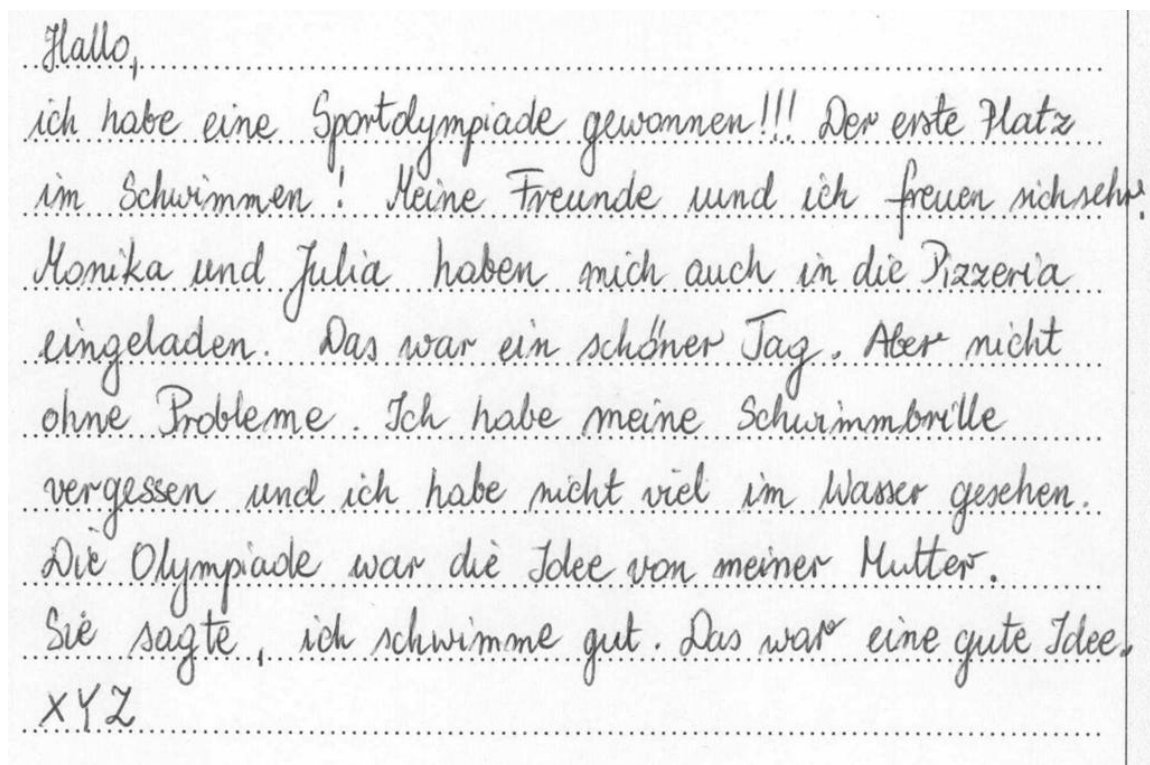 Hallo,
ich habe eine Sportolympiade gewonnen!!! Der erste Platz
im Schwimmen! Meine Freunde und ich freuen sich sehr.
Monika und Julia haben mich auch in die Pizzeria
eingeladen. Das war ein schöner Tag. Aber nicht
ohne Probleme. Ich habe meine Schwimmbrille
vergessen und ich habe nicht viel im Wasser gesehen.
Die Olympiade war die Idee von meiner Mutter.
Sie sagte, ich schwimme gut. Das war eine gute Idee.
XYZ